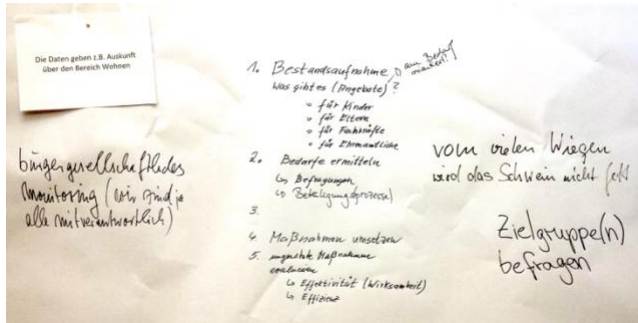 Die Daten geben z.B. Auskunft
über den Bereich Wohnen
bürgergesellschaftliches
Monitoring (wir sind ja
alle mitverantwortlich)
1. Bestandsaufnahme
am Bedarf
orientiert!
Was gibt es (Angebote)?
für Kinder
für Eltern
für Fachkräfte
für Ehrenamtliche
2. Bedarfe ermitteln
↳ Befragungen
↳ Beteiligungsprozesse
3.
4. Maßnahmen umsetzen
5. umgesetzte Maßnahmen
evaluieren
↳ Effektivität (Wirksamkeit)
↳ Effizienz
vom vielen Wiegen
wird das Schwein nicht fett
Zielgruppe(n)
befragen